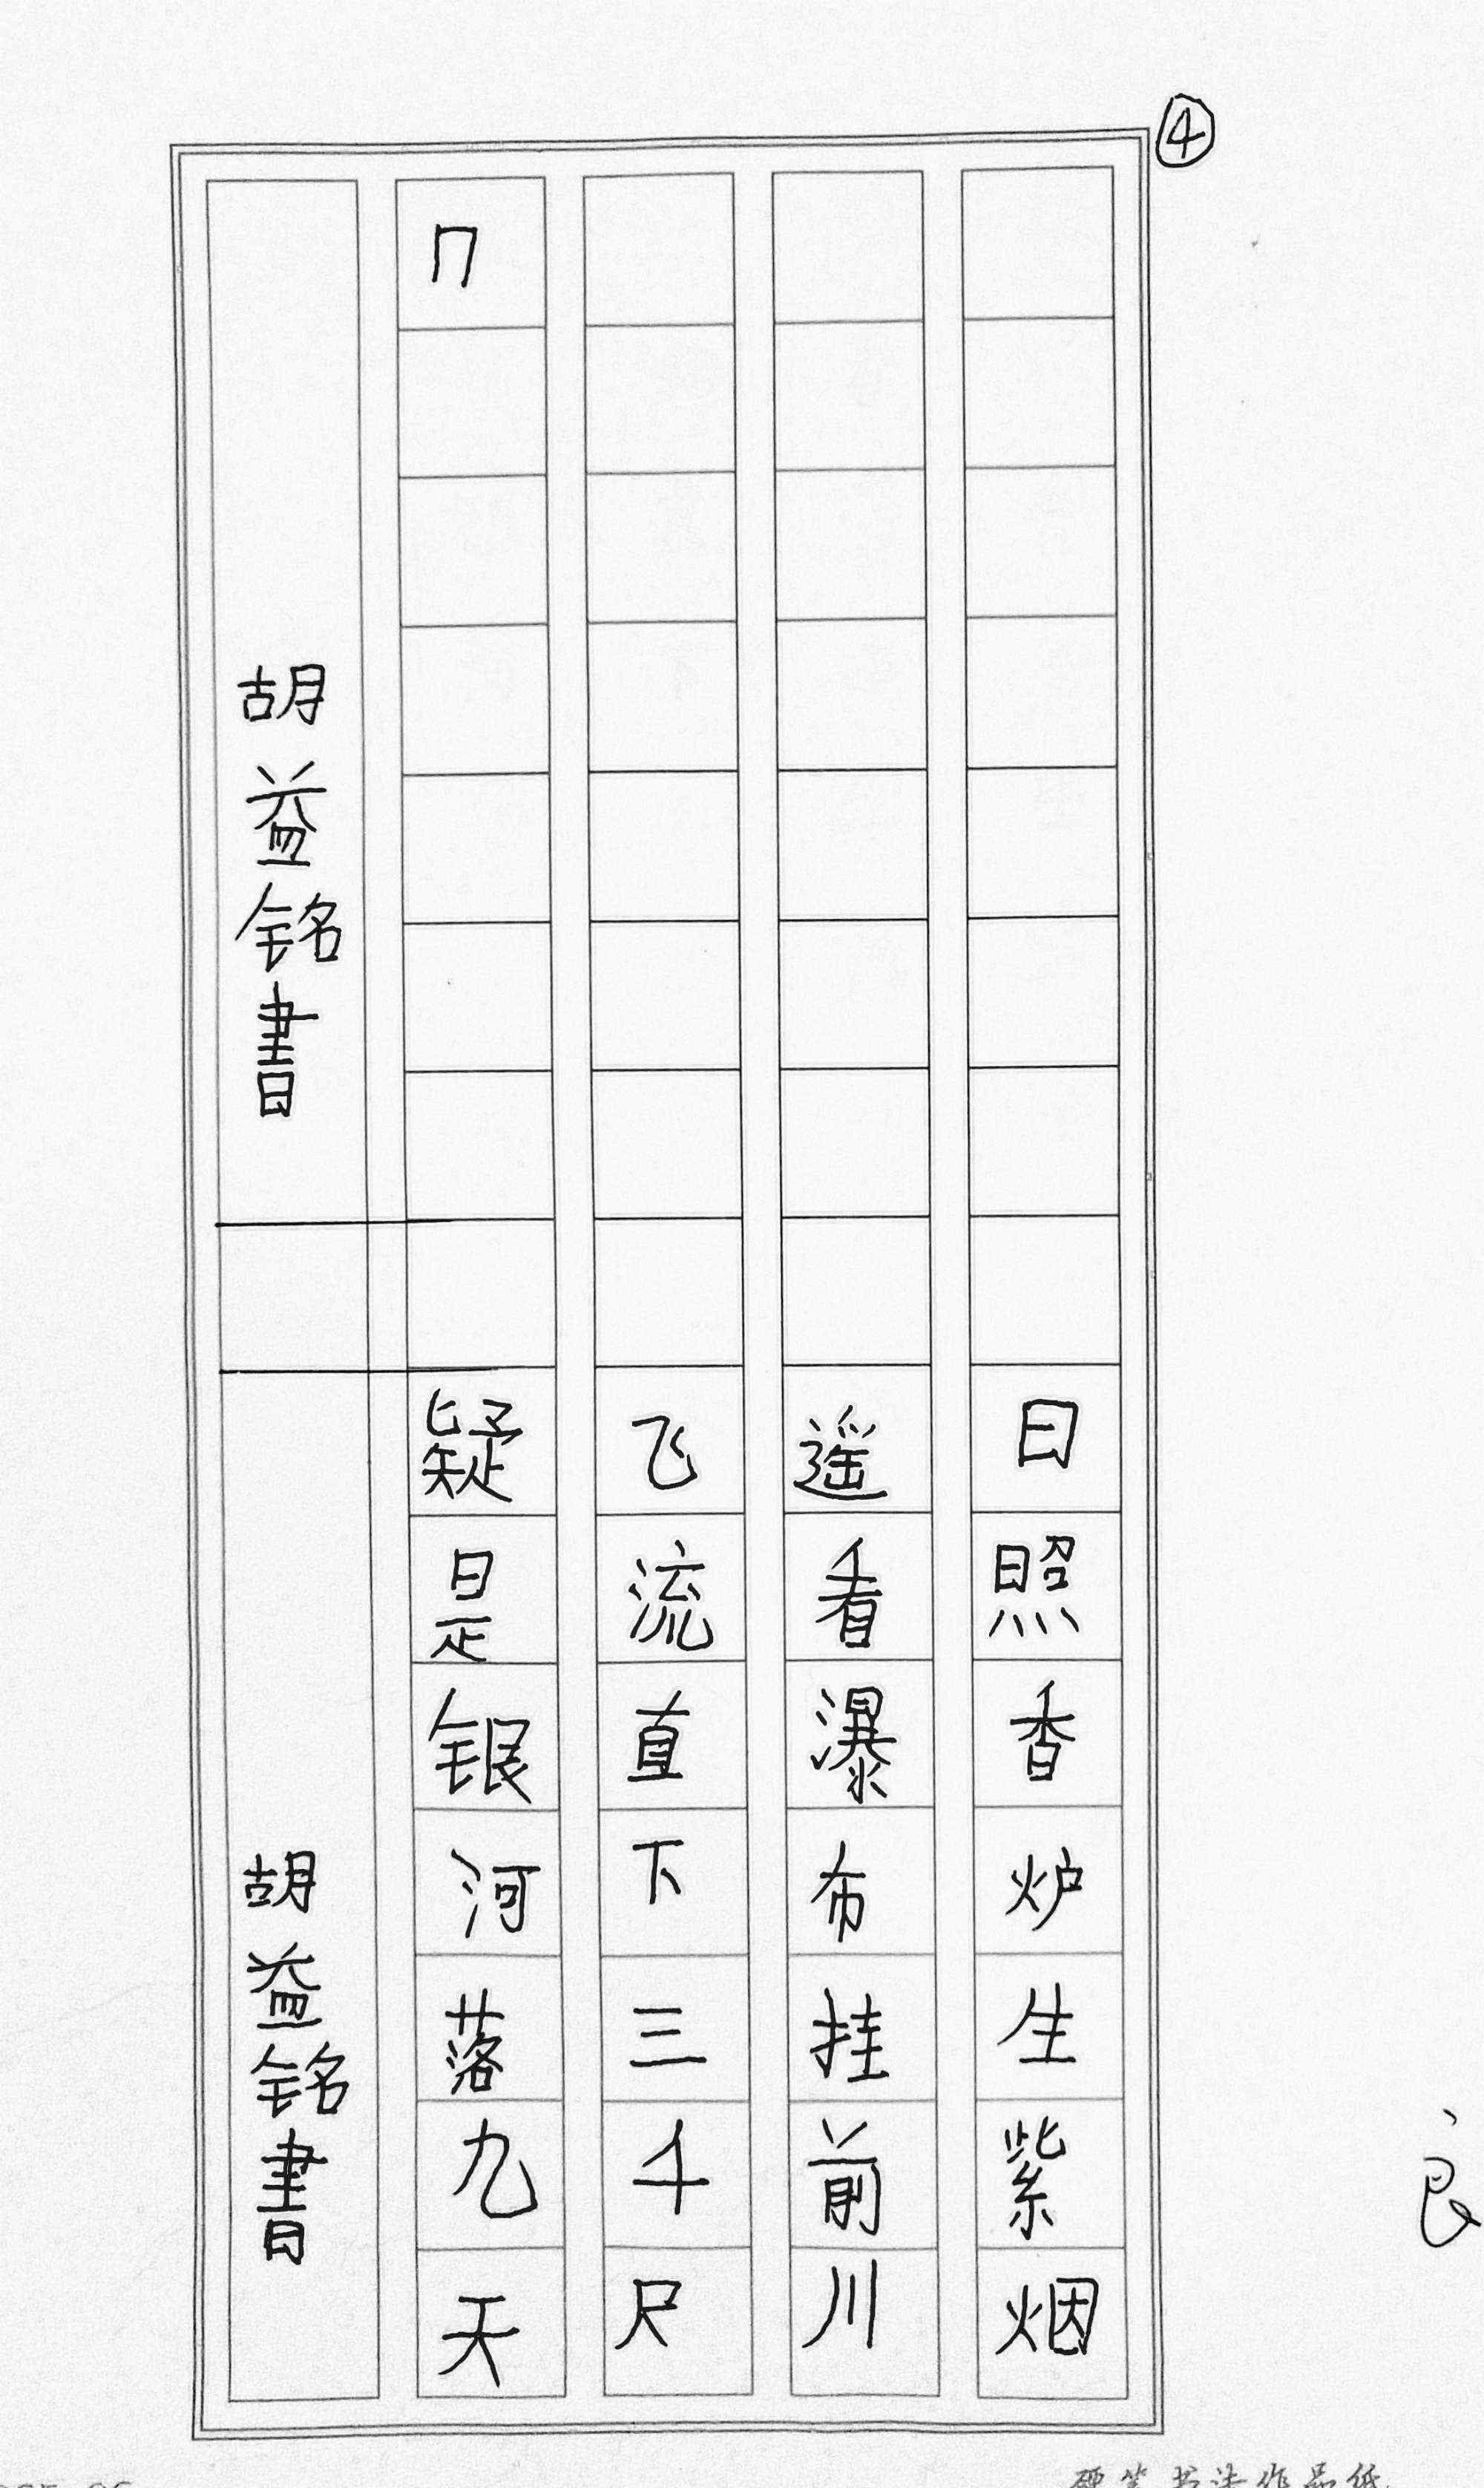 ④
日照香炉生紫烟
遥看瀑布挂前川
飞流直下三千尺
疑是银河落九天
胡益铭書
胡益铭書
良
硬笔书法作品纸